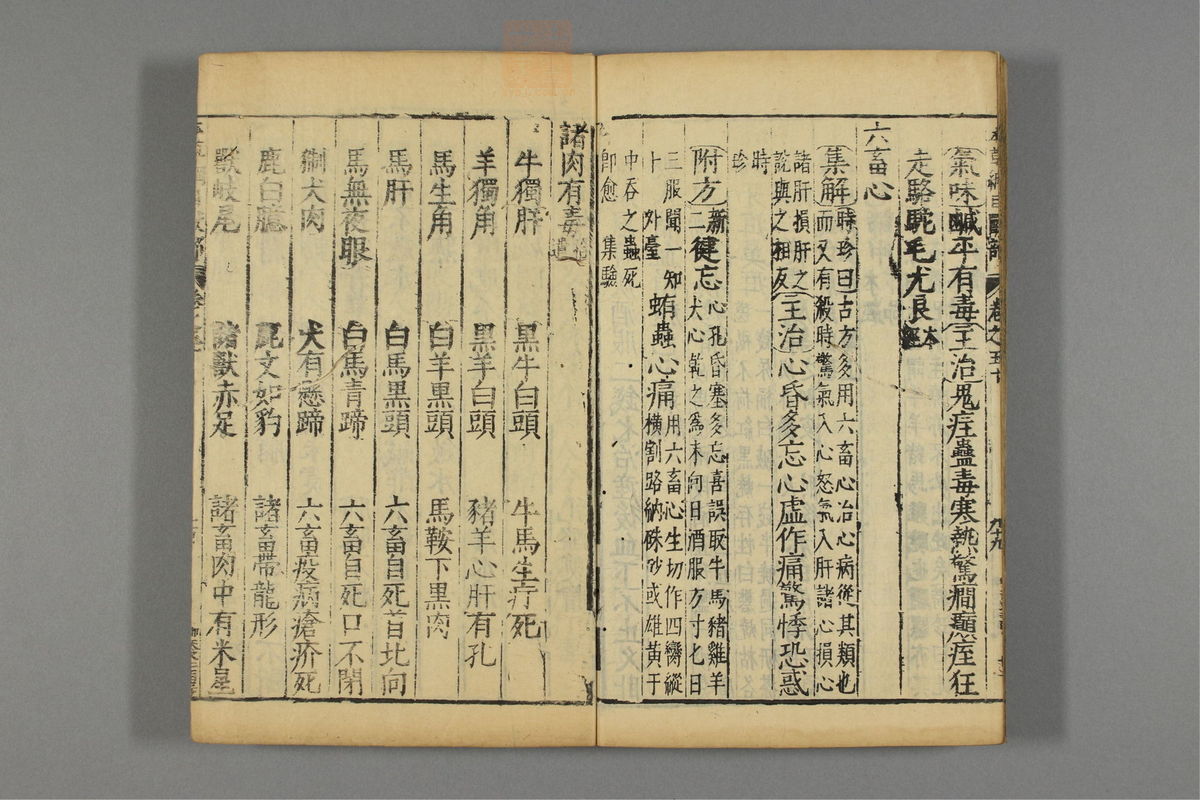 氣味鹹平有毒主治鬼疰蠱毒寒熱驚癇癲痓狂
走駱駝毛尤良本經
六畜心
集解時珍曰古方多用六畜心治心病從其類也
而又有殺時驚氣入心怒氣入肝諸心損心
諸肝損肝之
說與之相反主治心昏多忘心虛作痛驚悸恐惑
時
珍
附方新二健忘心孔昏塞多忘喜誤取牛馬豬雞羊
犬心乾之爲末向日酒服方寸匕日
三服聞一知
十 外臺蛕蟲心痛用六畜心生切作四臠縱
橫割路納硃砂或雄黃于
中吞之蟲死
卽愈 集驗
諸肉有毒
牛獨肝 黑牛白頭 牛馬生疔死
羊獨角 黑羊白頭 豬羊心肝有孔
馬生角 白羊黑頭 馬鞍下黑肉
馬肝 白馬黑頭 六畜自死首北向
馬無夜眼 白馬青蹄 六畜自死口不閉
猘犬肉 犬有懸蹄 六畜疫病瘡疥死
鹿白臆 鹿文如豹 諸畜帶龍形
獸岐尾 諸獸赤足 諸畜肉中有米星